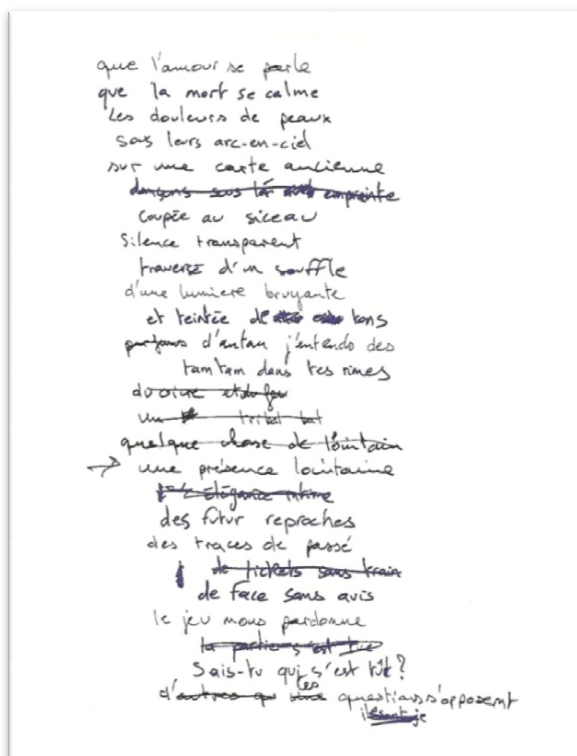 que l'amour se parle
que la mort se calme
les douleurs de peaux
sous leurs arc-en-ciel
sur une carte ancienne
dansons sous la empreinte
coupée au siceau
Silence transparent
traversé d'un souffle
d'une lumiere bruyante
et teintée de tons
parfums d'antan j'entends des
tamtam dans tes rimes
du cuivre et du feu
un tribal bat
quelque chose de lointain
→ une présence lointaine
élégance intime
des futur reproches
des traces de passé
de tickets sans train
de face sans avis
le jeu nous pardonne
la partie s'est tue
Sais-tu qui s'est tût ?
d'autres les questions s'opposent